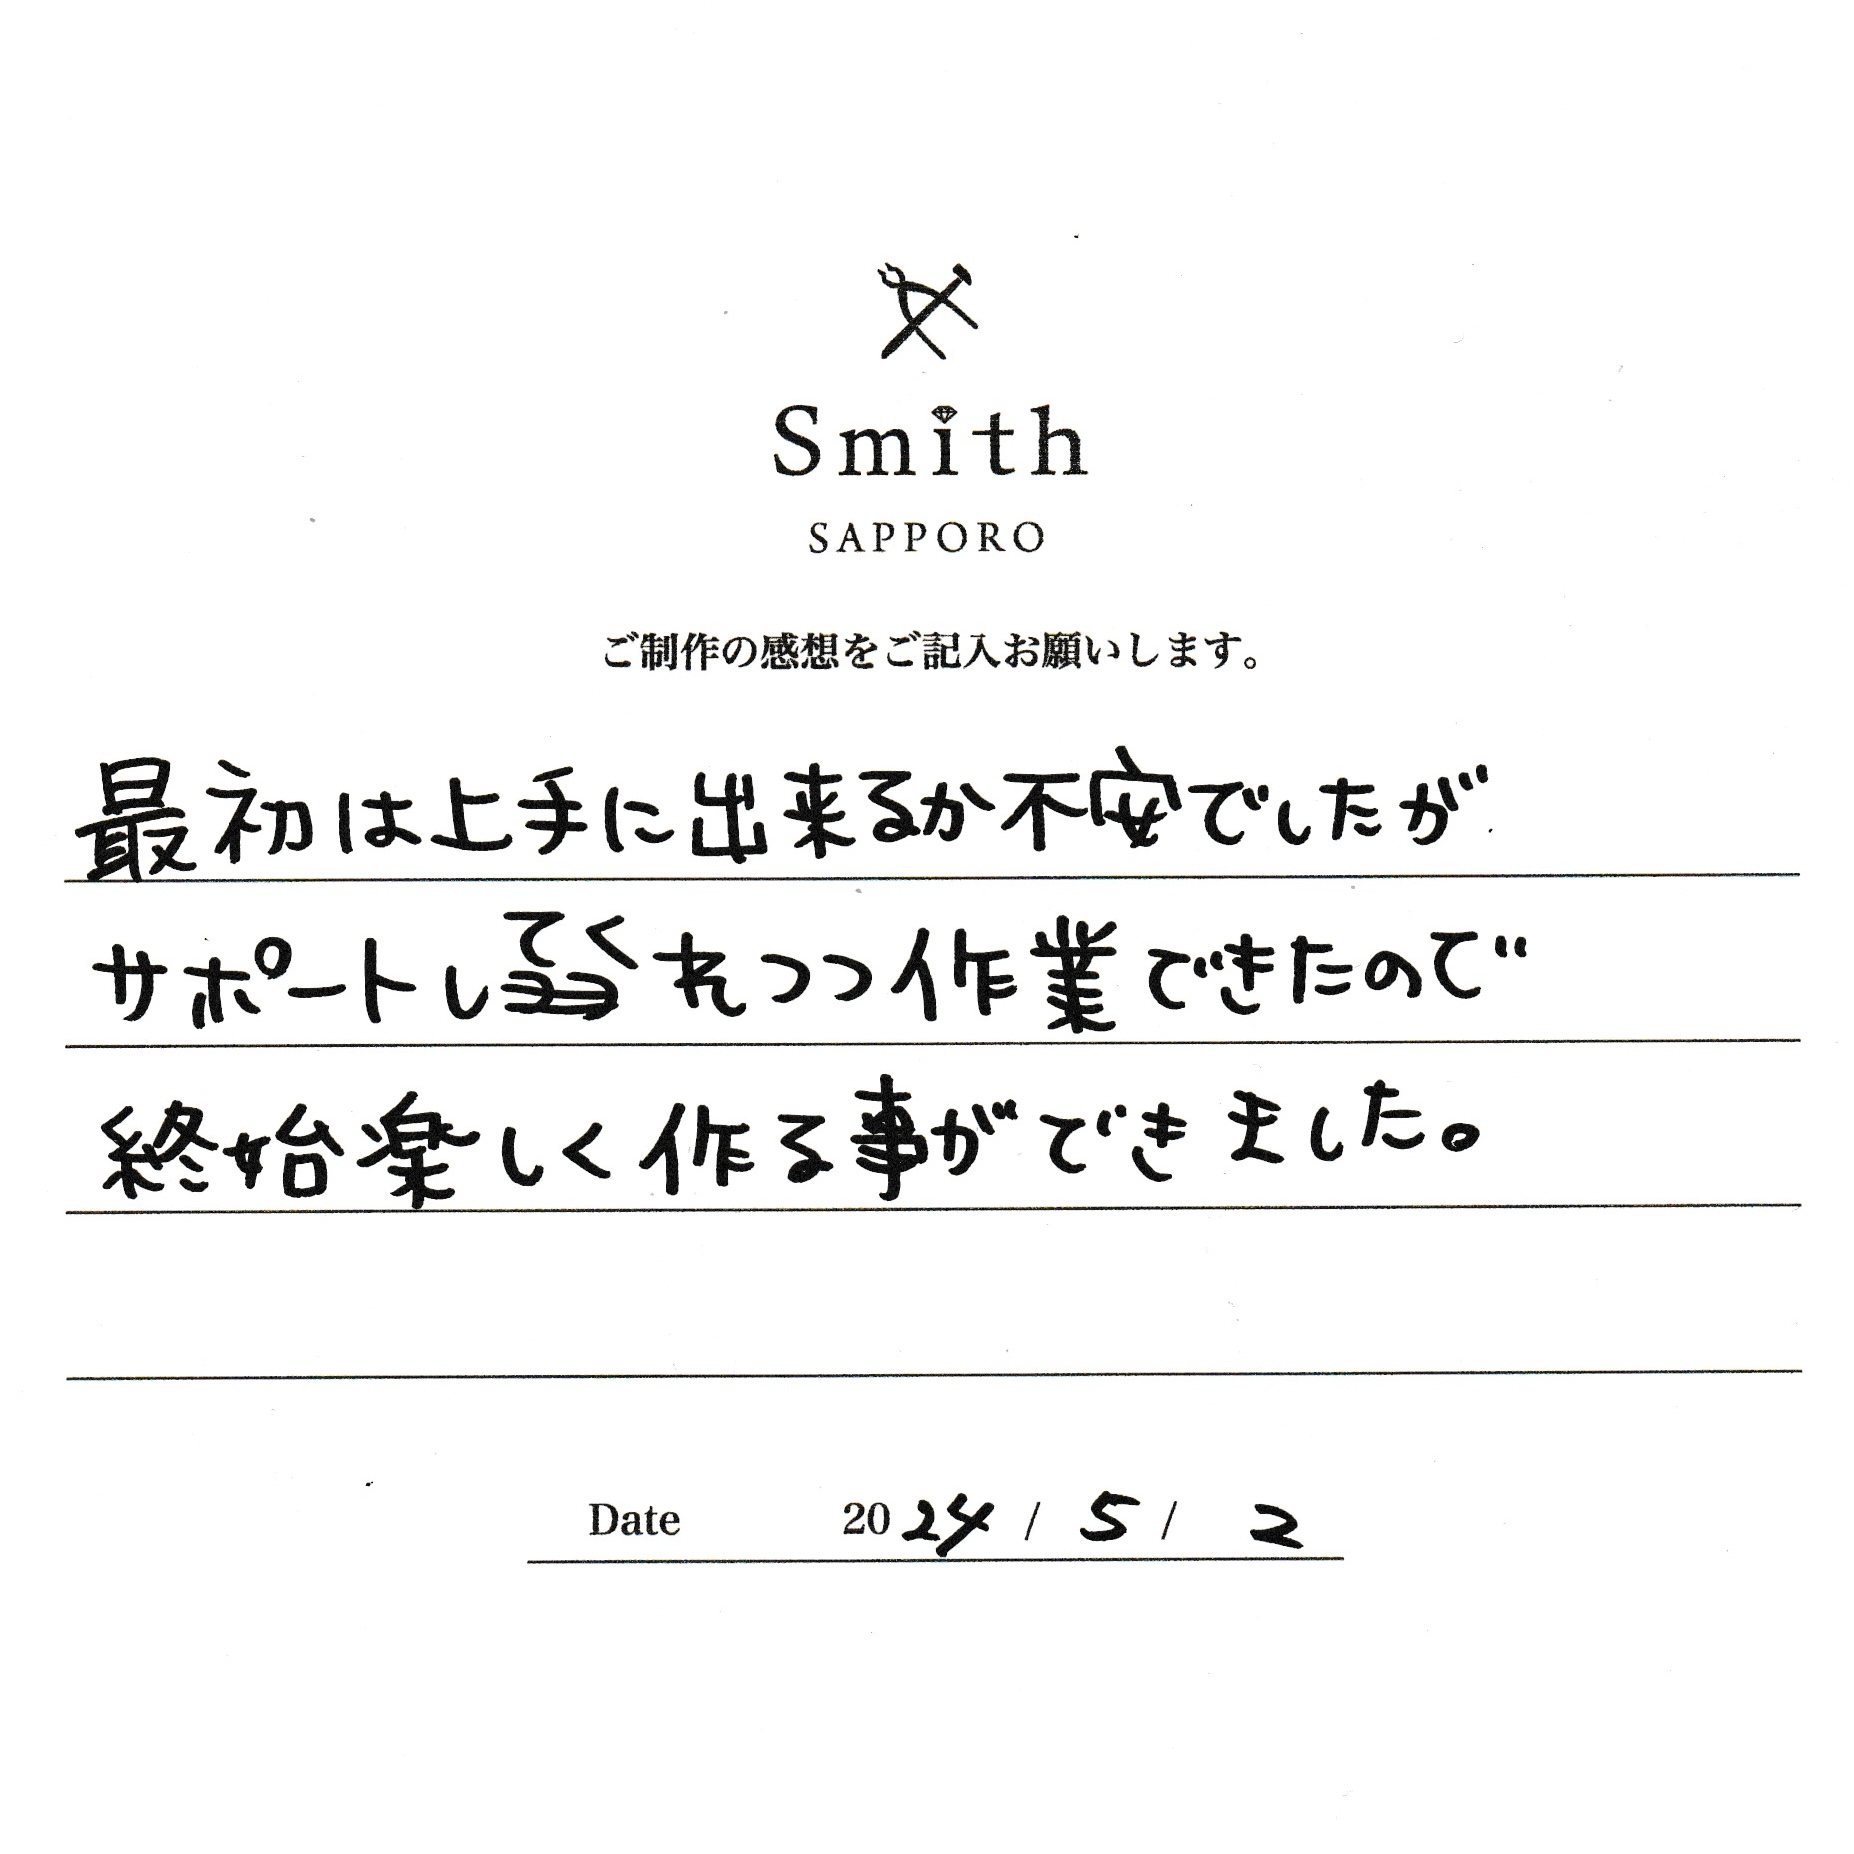 Smith
SAPPORO
ご制作の感想をご記入お願いします。
最初は上手に出来るか不安でしたが
サポートしてくれつつ作業できたので
終始楽しく作る事ができました。
Date 2024 / 5 / 2